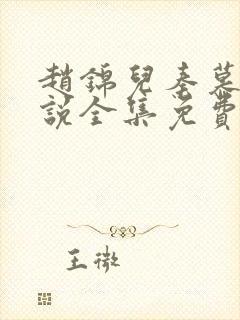 趙錦兒秦慕
說全集免費
王微